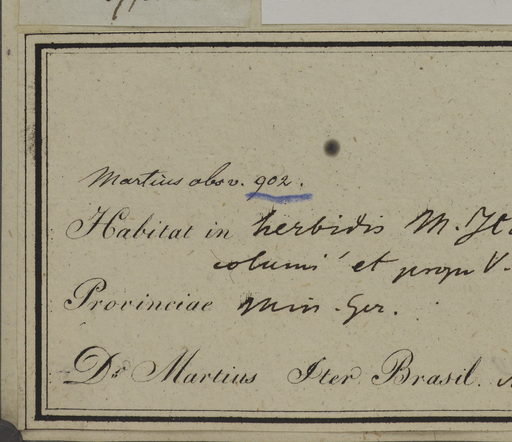 Martius obsv. 902.
Habitat in herbidis M.
et prope V.
Provinciae Min. Ger.
Dr. Martius Iter Brasil.